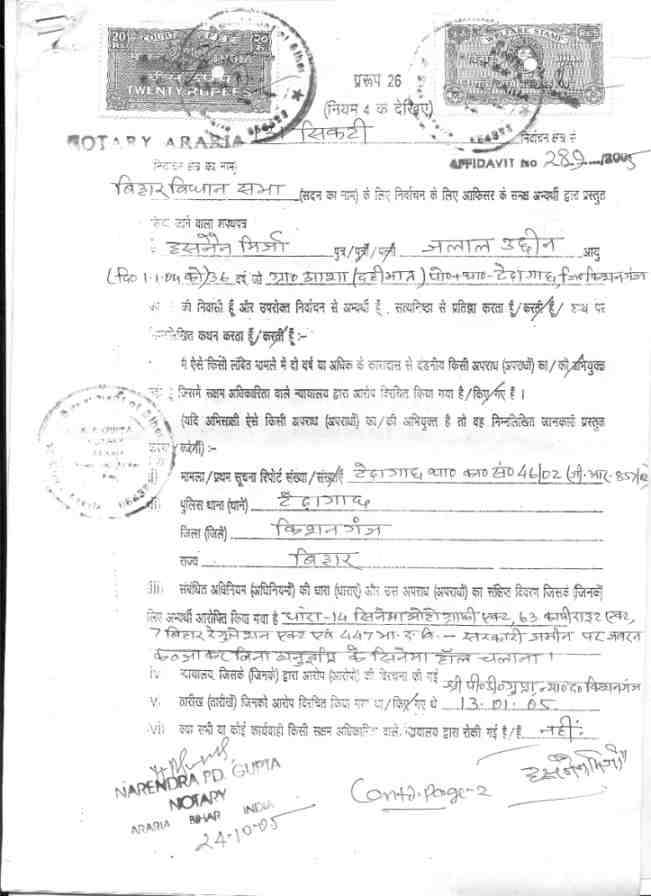 20 COURT FEE 20
TWENTY RUPEES
WELFARE STAMP
प्ररूप 26
(नियम 4 क देखिए)
NOTARY ARARIA
सिकटी
निर्वाचन क्षेत्र सं
निर्वाचन क्षेत्र का नाम
AFFIDAVIT No 289 /2005
बिहार विधान सभा (सदन का नाम) के लिए निर्वाचन के लिए आफिसर के समक्ष अभ्यर्थी द्वारा प्रस्तुत
किए जाने वाला शपथपत्र
हसनैन मिर्जा पुत्र/पुत्री/पत्नी जलाल उद्दीन आयु
(दि० 1.1.04 को) 36 वर्ष जो ग्रा० आशा (दहीभात) पो०+था०-टेढ़ागाछ, जि० किशनगंज
का की निवासी हूँ और उपरोक्त निर्वाचन से अभ्यर्थी हूँ, सत्यनिष्ठा से प्रतिज्ञा करता हूँ/करती हूँ/ शपथ पर
निम्नलिखित कथन करता हूँ/करती हूँ :-
मैं ऐसे किसी लंबित मामले में दो वर्ष या अधिक के कारावास से दंडनीय किसी अपराध (अपराधों) का/की अभियुक्त
जिसमें सक्षम अधिकारिता वाले न्यायालय द्वारा आरोप विरचित किया गया है/किए गए हैं ।
(यदि अभिसाक्षी ऐसे किसी अपराध (अपराधों) का/की अभियुक्त है तो वह निम्नलिखित जानकारी प्रस्तुत
करेगा/करेगी) :-
मामला/प्रथम सूचना रिपोर्ट संख्या/संख्याएँ टेढ़ागाछ था० कां० सं० 46/02 (जी.आर. 857/02
पुलिस थाना (थाने) टेढ़ागाछ
जिला (जिले) किशनगंज
राज्य बिहार
iii) संबंधित अधिनियम (अधिनियमों) की धारा (धाराएं) और उस अपराध (अपराधों) का संक्षिप्त विवरण जिसके (जिनके)
लिए अभ्यर्थी आरोपित किया गया है धारा-14 सिनेमाओटोग्राफी एक्ट, 63 कापीराइट एक्ट,
7 बिहार रेगुलेशन एक्ट एवं 447 भा.द.वि. - सरकारी जमीन पर जबरन
कब्जा कर बिना अनुज्ञप्ति के सिनेमा हॉल चलाना ।
iv न्यायालय, जिसके (जिनके) द्वारा आरोप (आरोपों) की विरचना की गई श्री पी०डी० गुप्ता, न्या०द० किशनगंज
v. तारीख (तारीखें) जिनको आरोप विरचित किया गया था/किए गए थे 13.01.05
vi) क्या सभी या कोई कार्यवाही किसी सक्षम अधिकारिता वाले न्यायालय द्वारा रोकी गई है/हैं नहीं:
NARENDRA PD. GUPTA
NOTARY
ARARIA BIHAR INDIA
24-10-05
Contd. Page-2
हसनैन मिर्जा